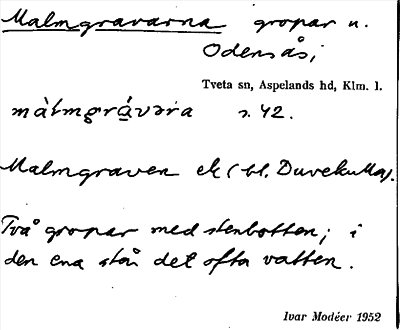 Malmgravarna gropar n.
Odensås;
Tveta sn, Aspelands hd, Klm. l.
màlmgrá̱vəṙa s. 42.
Malmgraven ek (bl. Duvekulla).
Två gropar med stenbotten; i
den ena står det ofta vatten.
Ivar Modéer 1952